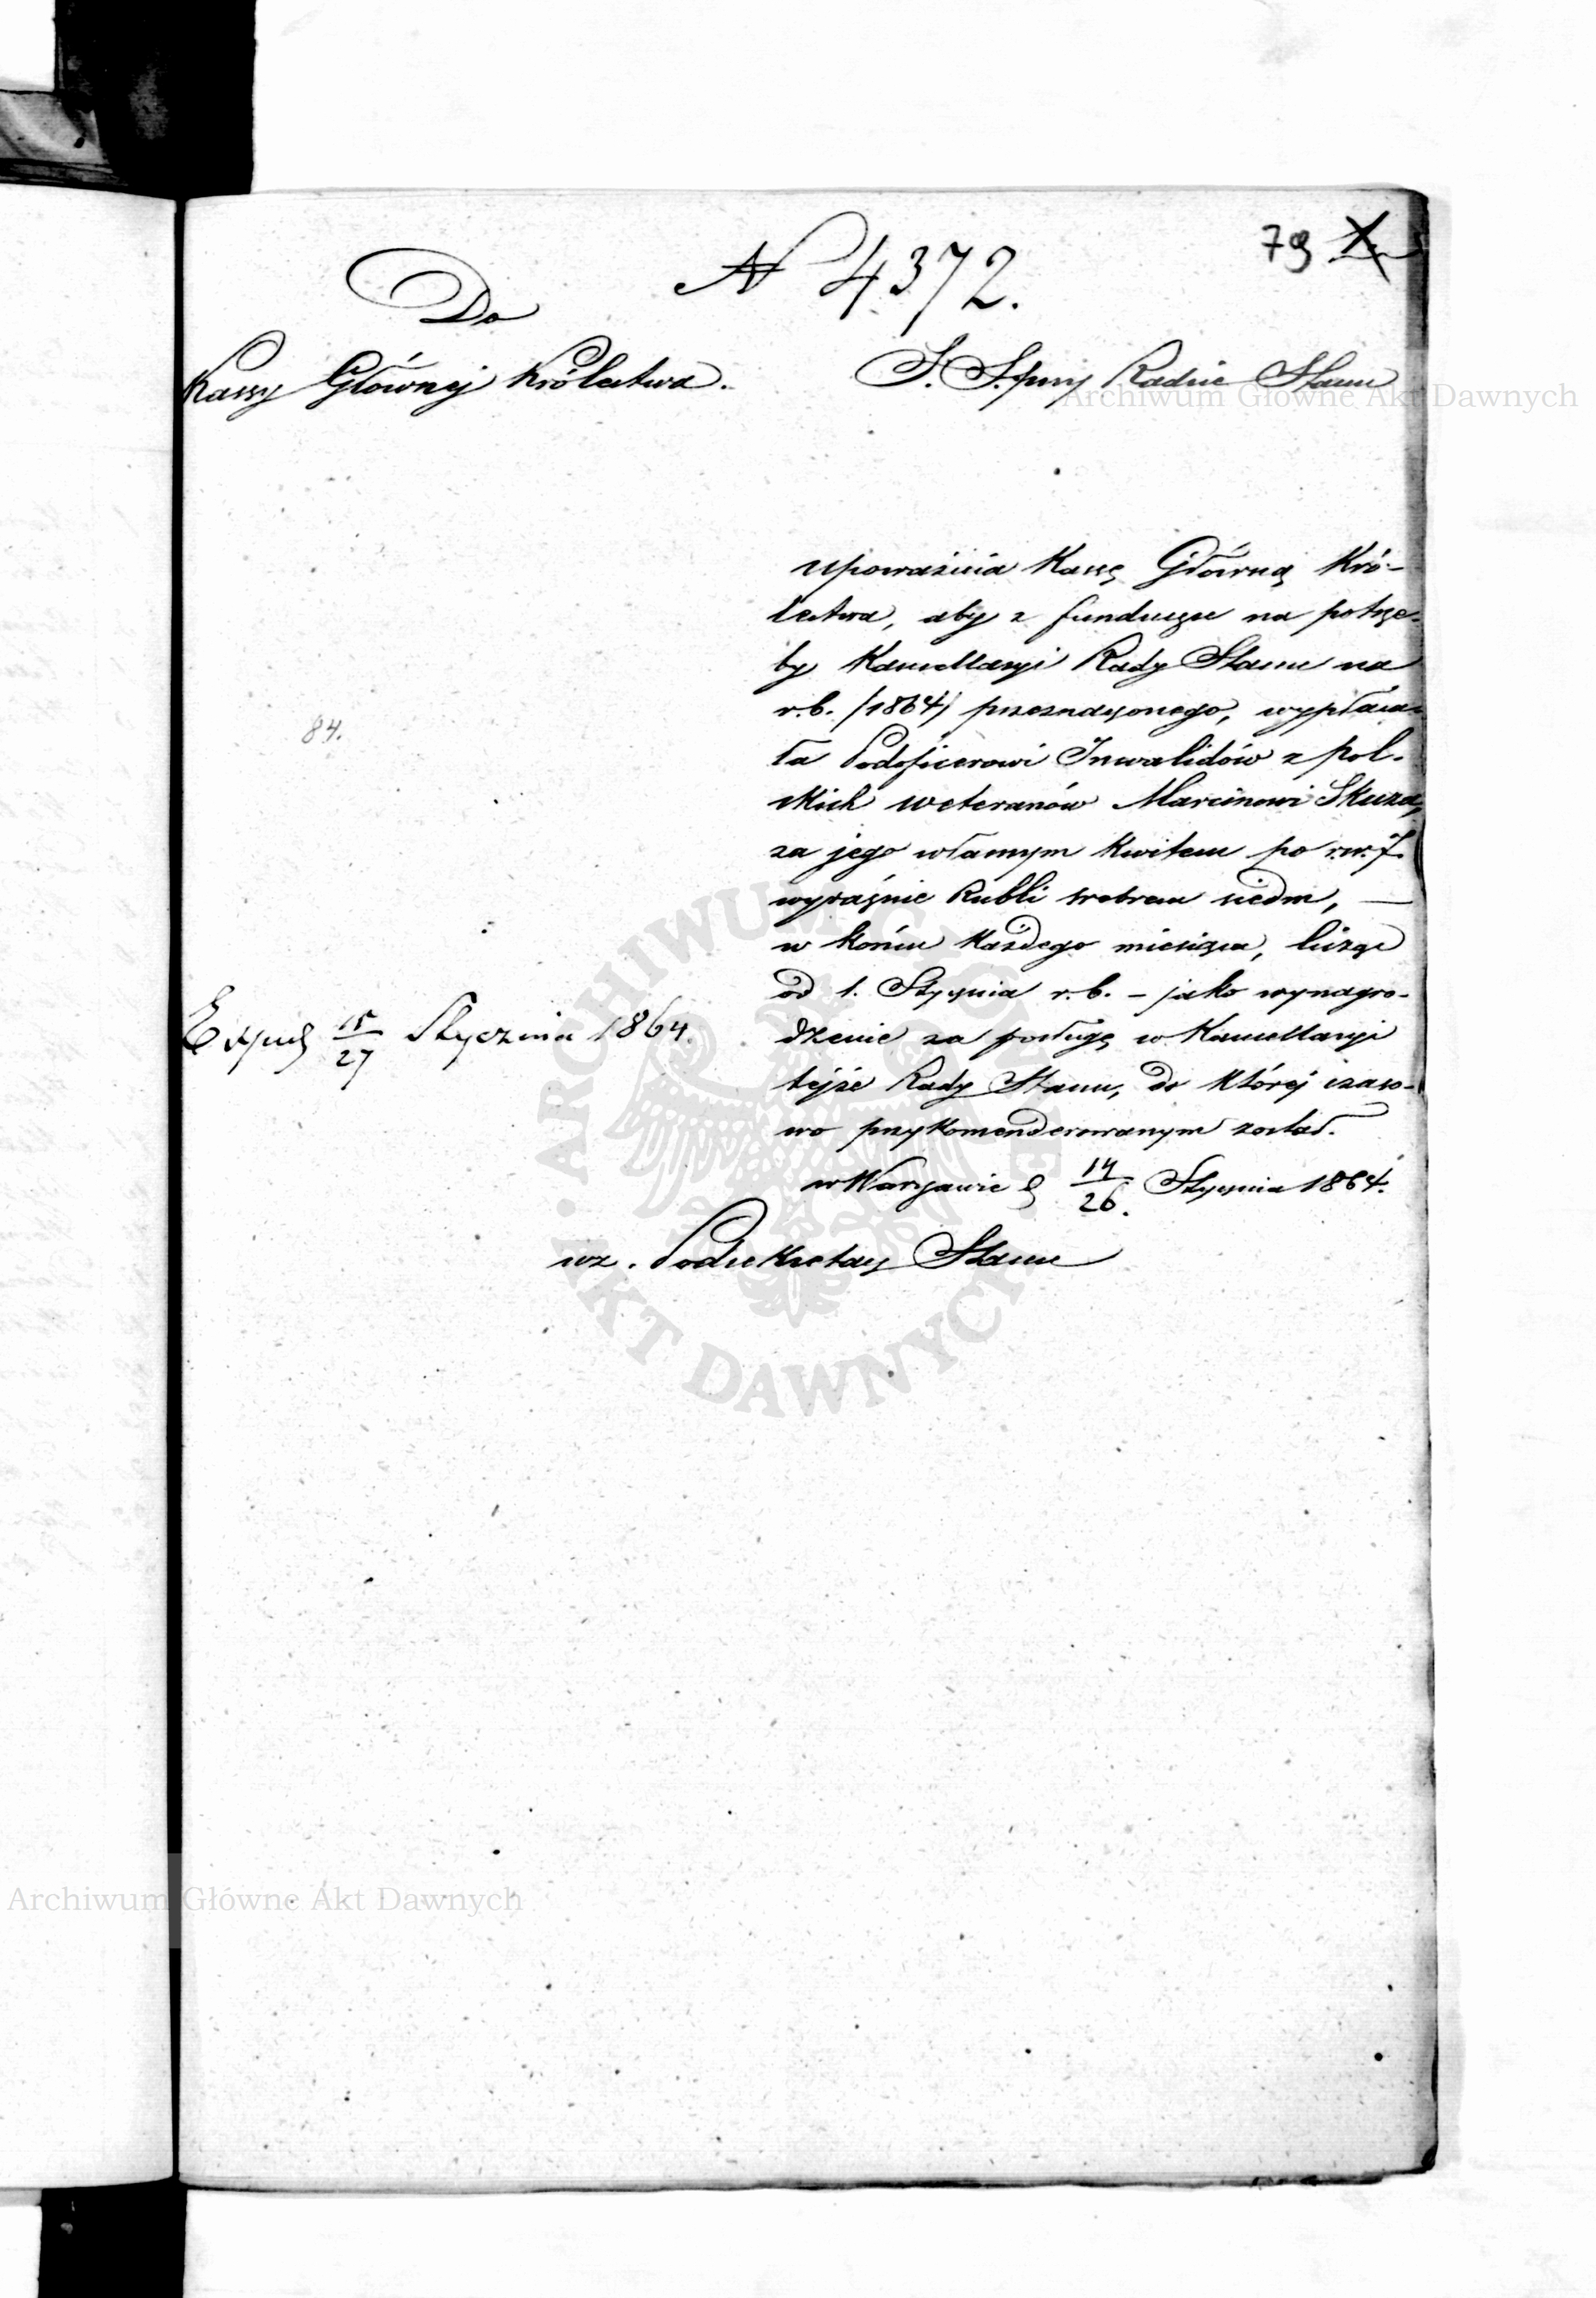 N 4372.
79
Do
Kassy Głównej Królestwa.
S. S. przy Radzie Stanu
Archiwum Główne Akt Dawnych
upoważnia Kassę Główną Kró-
lestwa, aby z funduszu na potrze-
by Kancellaryi Rady Stanu na
r.b. /1864/ przeznaczonego, wypłaca-
ła Podoficerowi Inwalidów z pol-
skich weteranów Marcinowi Skuza,
za jego własnym kwitem po r.sr. 7.
wyraźnie Rubli srebrem siedm, —
w końcu każdego miesiąca, licząc
od 1. Stycznia r.b. – jako wynagro-
dzenie za posługę w Kancellaryi
tejże Rady Stanu, do której czaso-
wo przykomenderowanym został.
w Warszawie d 14/26. Stycznia 1864.
wz. Podsekretarz Stanu
84.
Exped 15/27 Stycznia 1864.
ARCHIWUM GŁÓWNE AKT DAWNYCH
Archiwum Główne Akt Dawnych